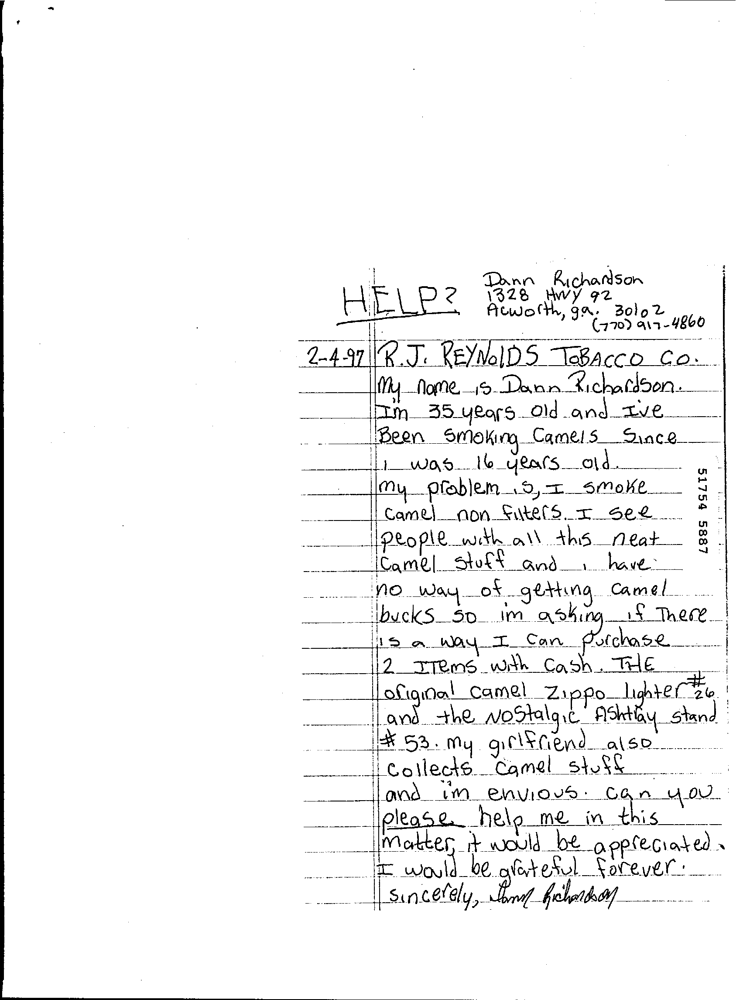 HELP?
Dann Richardson
1328 HWY 92
Acworth, ga. 30102
(770) 917-4860
2-4-97 R.J. REYNOLDS TOBACCO CO.
My name is Dann Richardson.
I'm 35 years old and I've
Been smoking Camels Since
i was 16 years old.
my problem is, I smoke
Camel non filters. I see
people with all this neat
Camel stuff and i have
no way of getting camel
bucks so im asking if There
is a way I can purchase
2 ITems with Cash. THE
original camel Zippo lighter #26
and the NOStalgic AShtray stand
# 53. my girlfriend also
collects camel stuff
and i'm envious. can you
please help me in this
matter, it would be appreciated.
I would be grateful forever.
sincerely, Dann Richardson
51754 5887